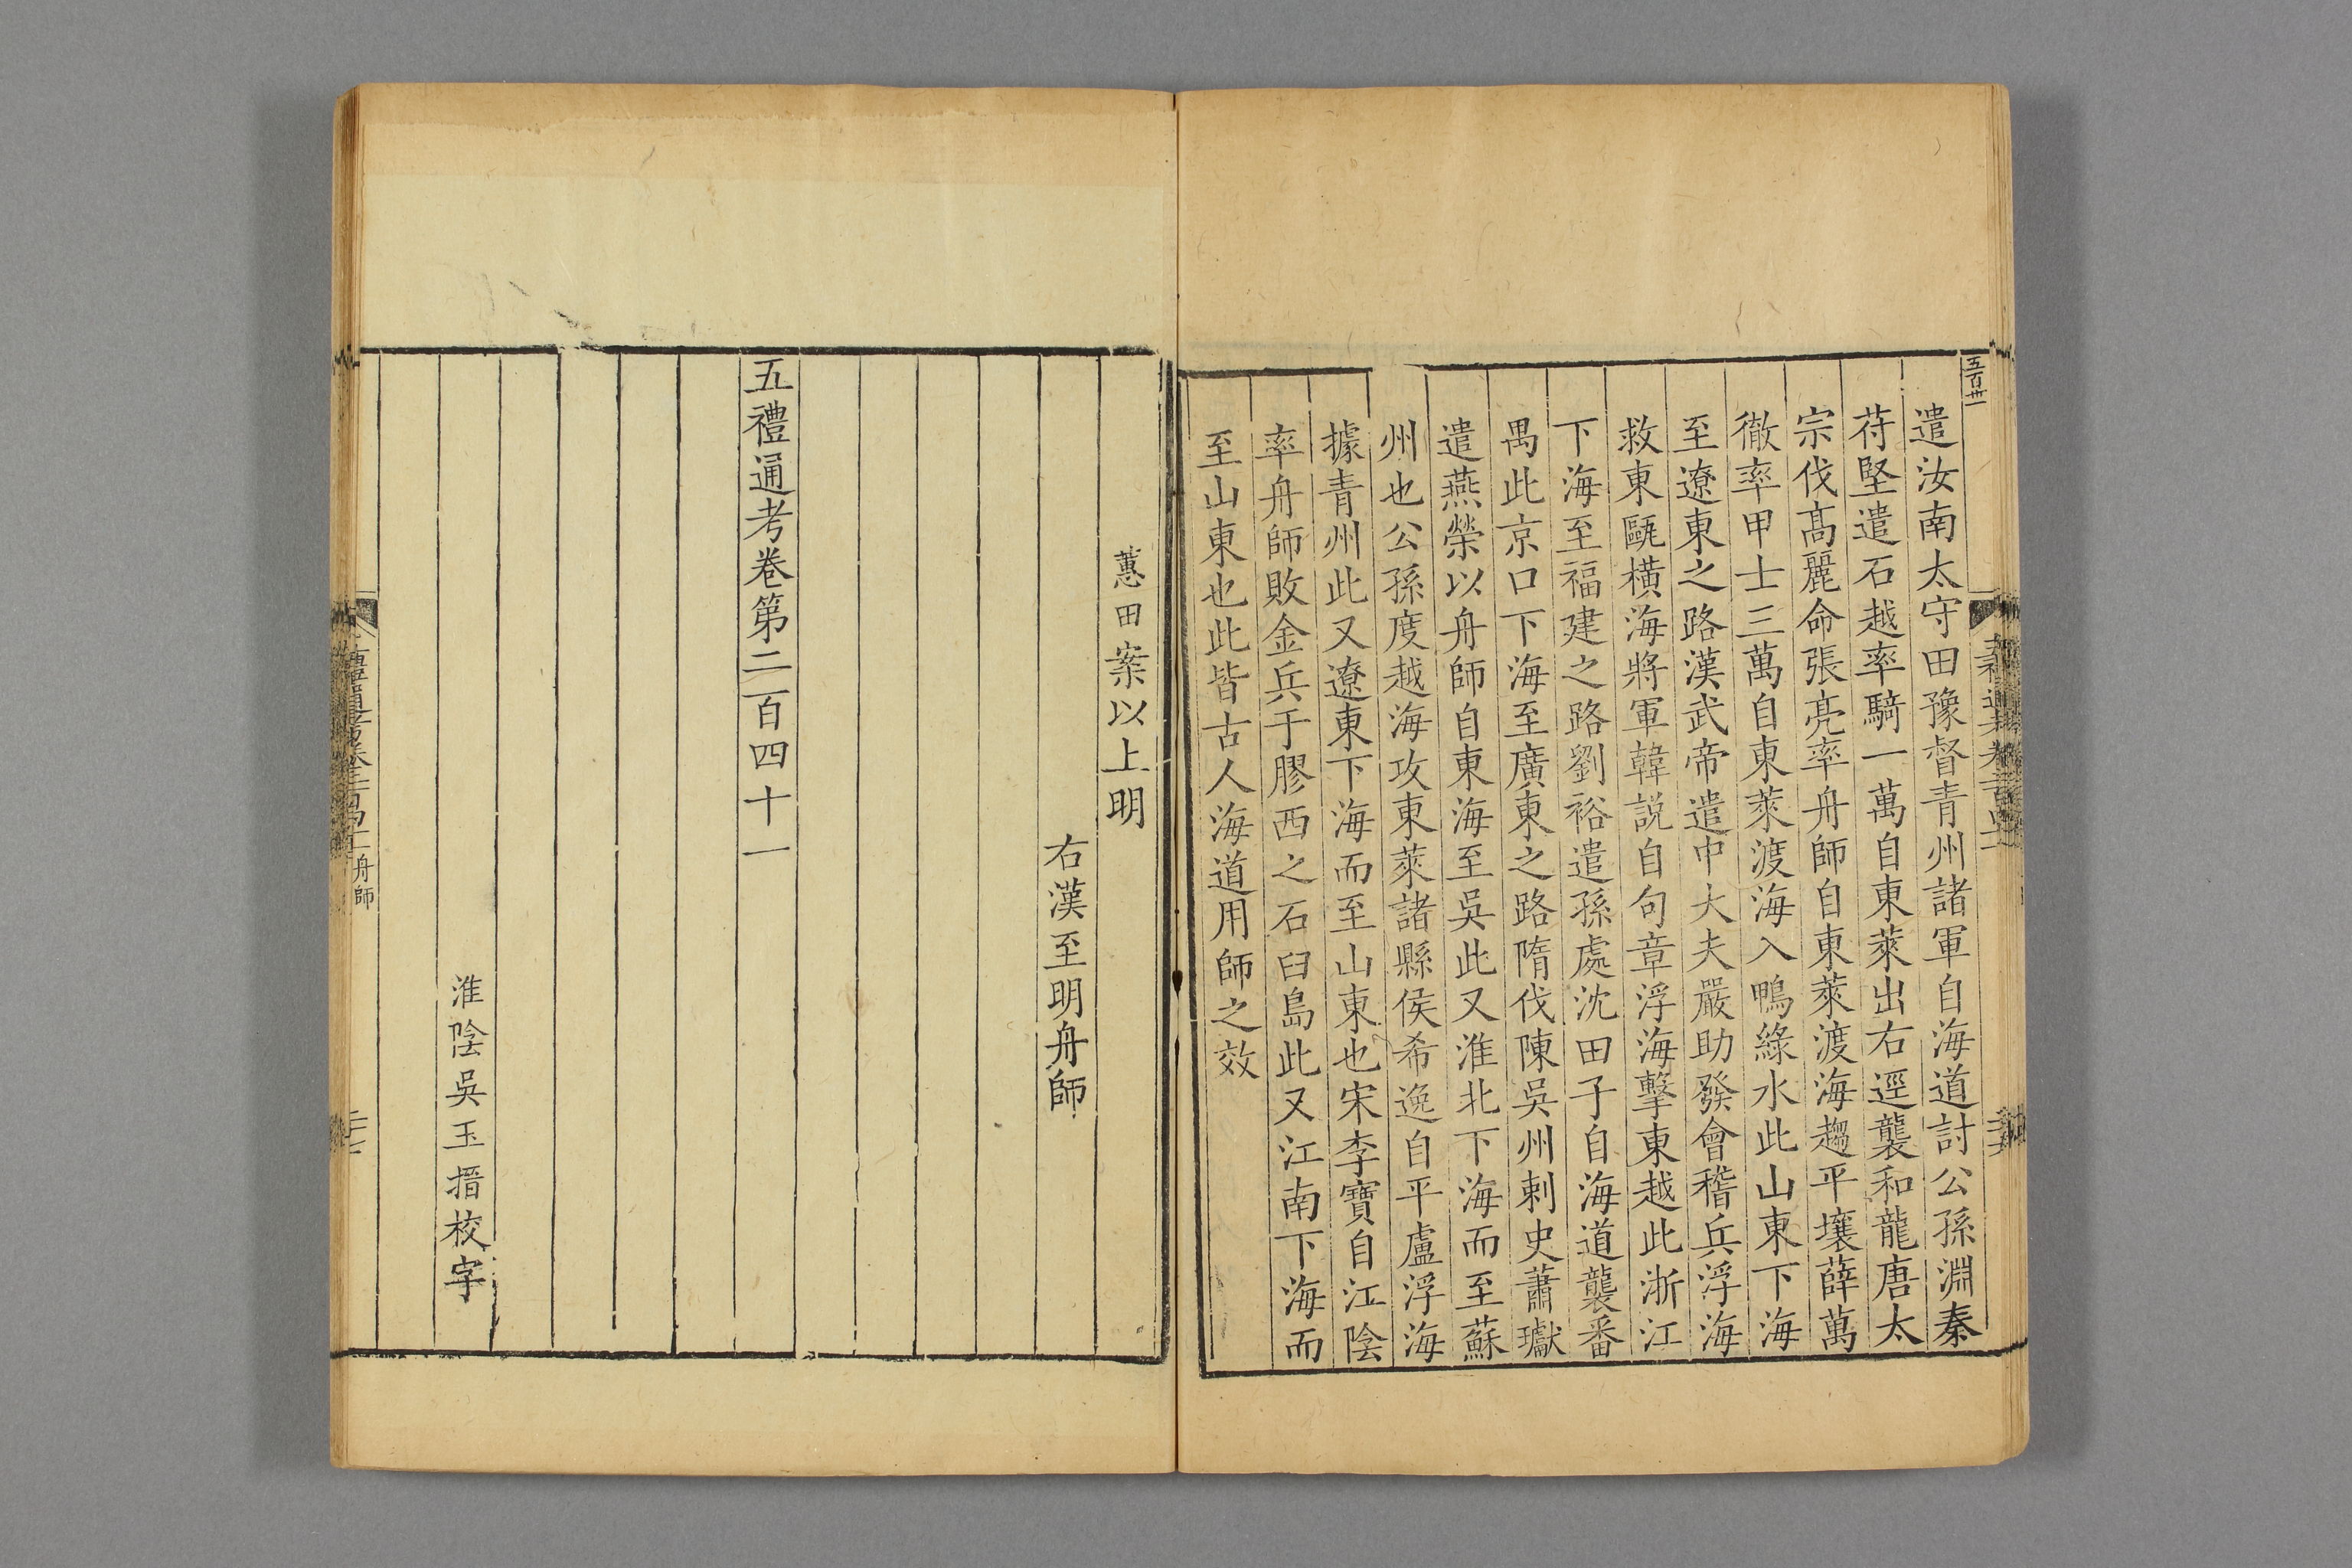 五百卅一
遣汝南太守田豫督青州諸軍自海道討公孫淵秦
苻堅遣石越率騎一萬自東萊出右逕襲和龍唐太
宗伐高麗命張亮率舟師自東萊渡海趨平壤薛萬
徹率甲士三萬自東萊渡海入鴨綠水此山東下海
至遼東之路漢武帝遣中大夫嚴助發會稽兵浮海
救東甌橫海將軍韓説自句章浮海擊東越此浙江
下海至福建之路劉裕遣孫處沈田子自海道襲番
禺此京口下海至廣東之路隋伐陳吳州刺史蕭瓛
遣燕榮以舟師自東海至吳此又淮北下海而至蘇
州也公孫度越海攻東萊諸縣侯希逸自平盧浮海
據青州此又遼東下海而至山東也宋李寶自江陰
率舟師敗金兵于膠西之石臼島此又江南下海而
至山東也此皆古人海道用師之效
蕙田案以上明
右漢至明舟師
五禮通考卷第二百四十一
淮陰吳玉搢校字
舟師